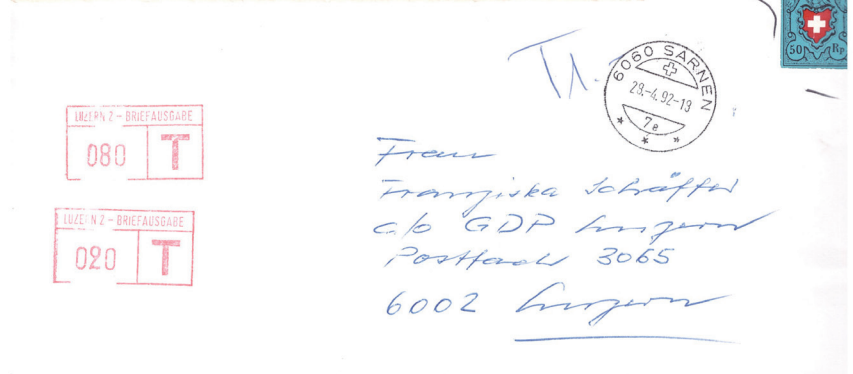 50 Rp
T 1.-
6060 SARNEN
28.-4.92-19
7e
LUZERN 2 - BRIEFAUSGABE
080 T
LUZERN 2 - BRIEFAUSGABE
020 T
Frau
Franziska Schäffer
c/o GDP Luzern
Postfach 3065
6002 Luzern